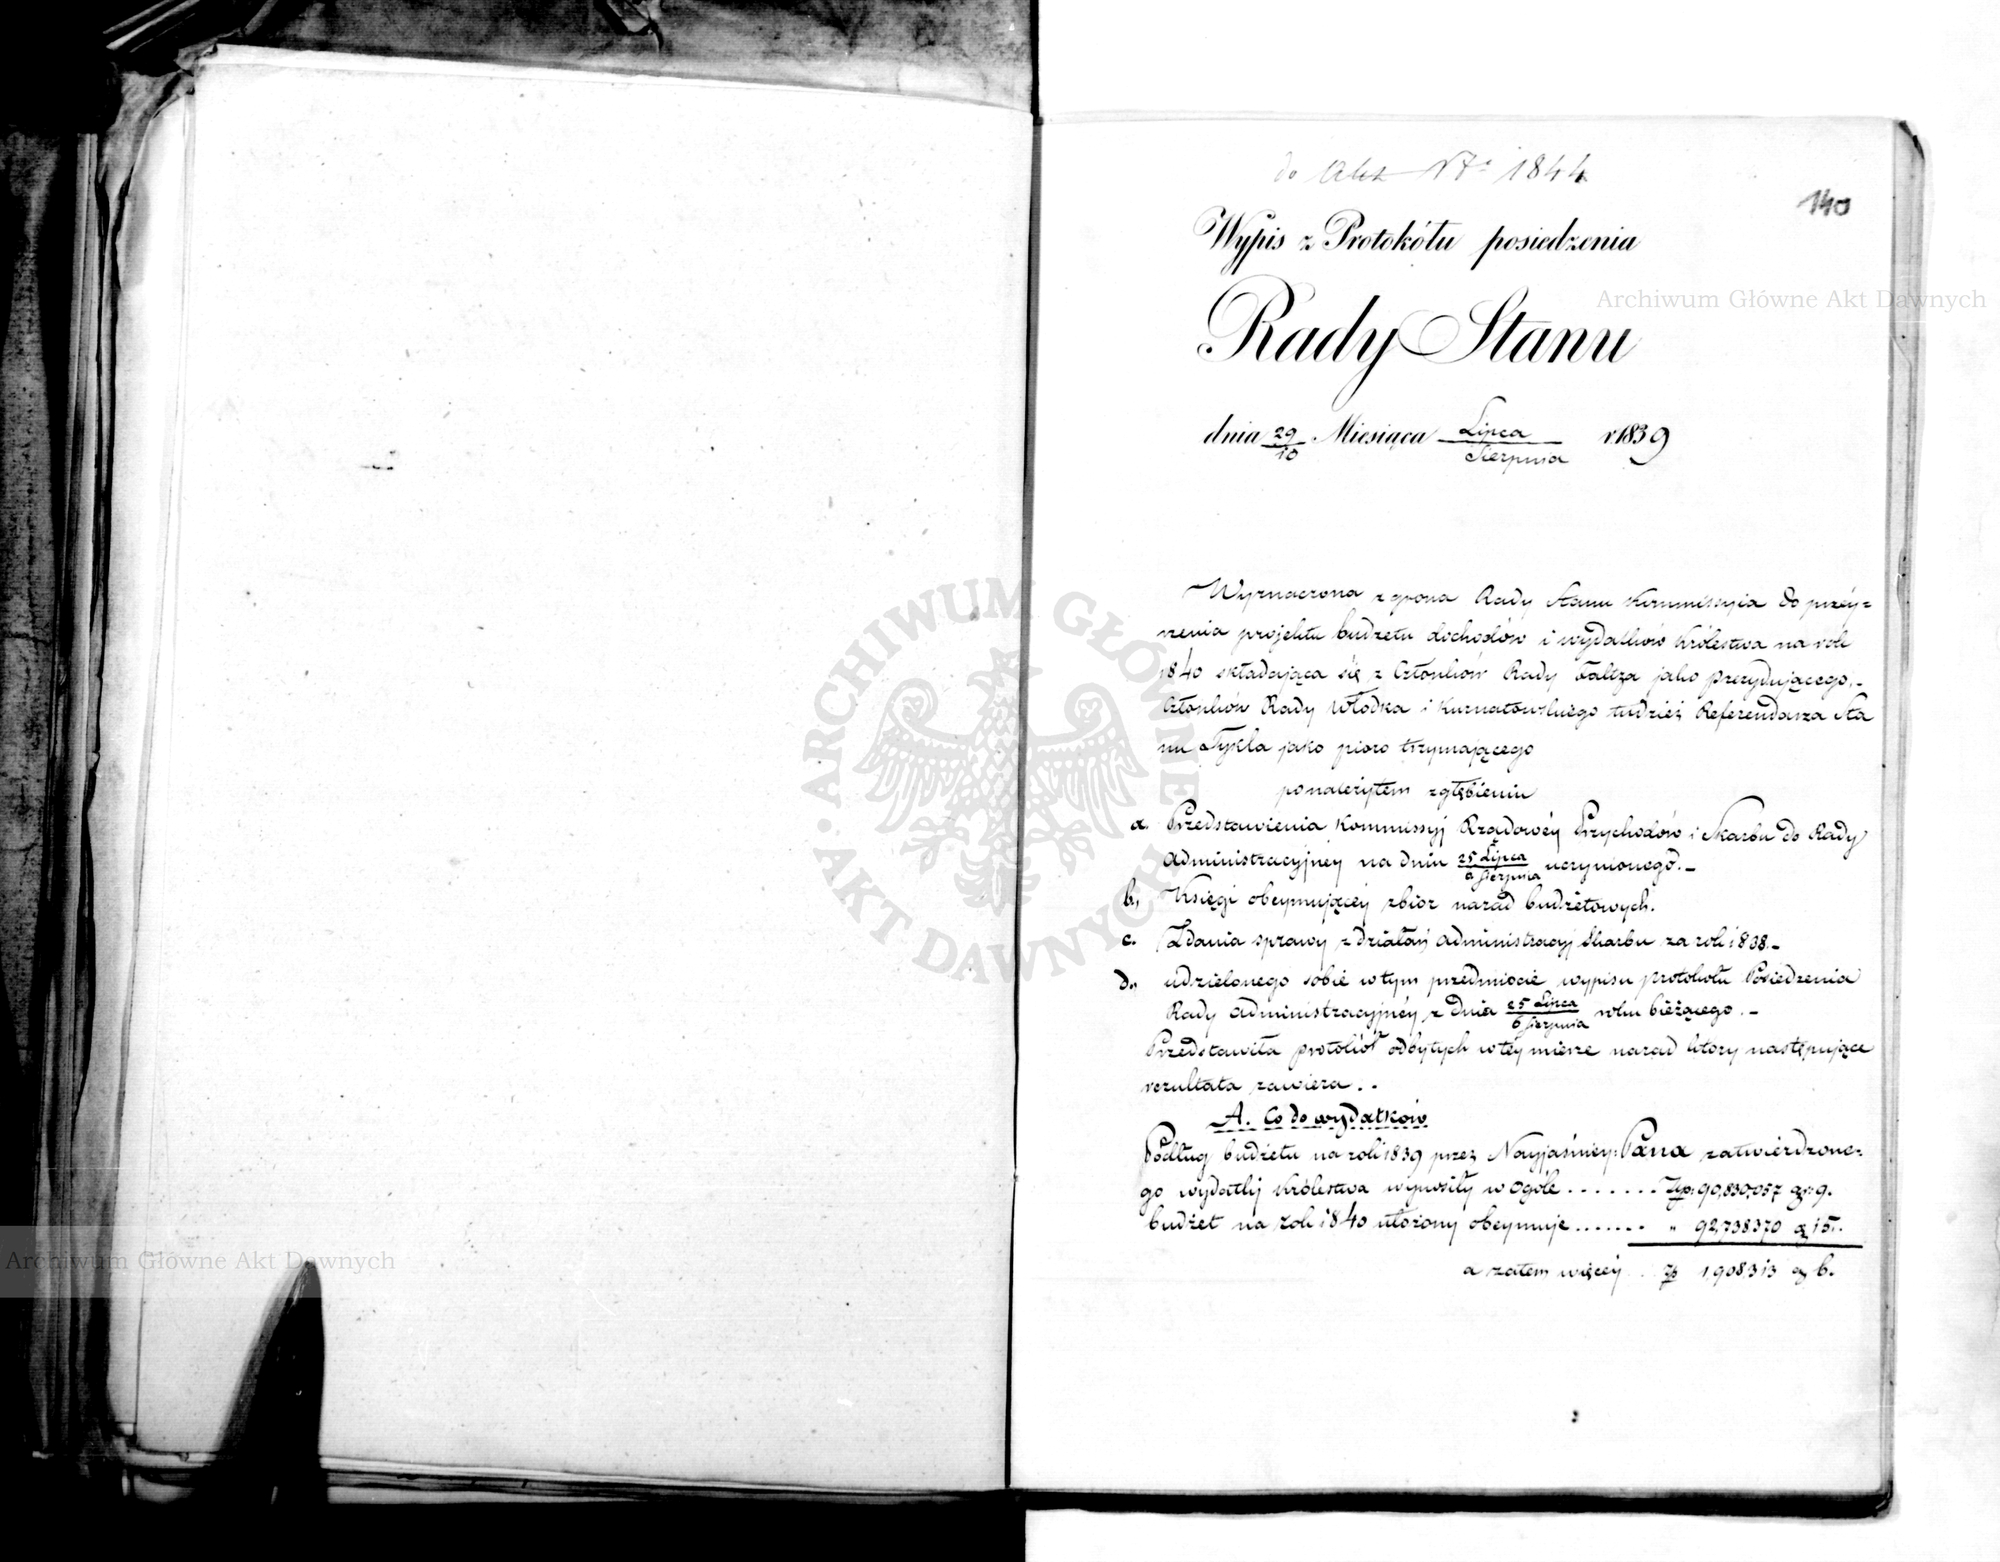 do Akt No 1844
140
Wypis z Protokółu posiedzenia
Rady Stanu
dnia 29/10 Miesiąca Lipca/Sierpnia r. 1839
Wyznaczona z grona Rady Stanu Kommissyia do przéy=
rzenia projektu budżetu dochodów i wydatków Królestwa na rok
1840 składająca się z Członków Rady Faltza jako prezydującego,–
Członków Rady Włodka i Kurnatowskiego tudzież Referendarza Sta
nu Tykla jako pioro trzymającego
po należytem zgłębieniu
a. Przedstawienia Kommissyj Rządowéy Przychodów i Skarbu do Rady
Administracyjnéy na dniu 25 Lipca/6 Sierpnia uczynionego.–
b, Księgi obeymującéy zbior narad budżetowych.
c. Zdania sprawy z działań Administracyj Skarbu za rok 1838.–
d., udzielonego sobie w tym przedmiocie wypisu protokołu Posiedzenia
Rady Administracyjnéy z dnia 25 Lipca/6 Sierpnia roku bieżącego.–
Przedstawiła protokół odbytych w téy mierze narad ktory następujące
rezultata zawiera..
A. Co do wydatków
Podług budżetu na rok 1839 przez Nayjaśniey: Pana zatwierdzone=
go wydatki Królestwa wynosiły w ogóle ....... Złp: 90,830,057 gr: 9.
budżet na rok 1840 ułożony obeymuje ....... „ 92,738370 g 15.
a zatem więcéy . . Zł 1,908,313 g 6.
Archiwum Główne Akt Dawnych
Archiwum Główne Akt Dawnych
· ARCHIWUM GŁÓWNE · AKT DAWNYCH